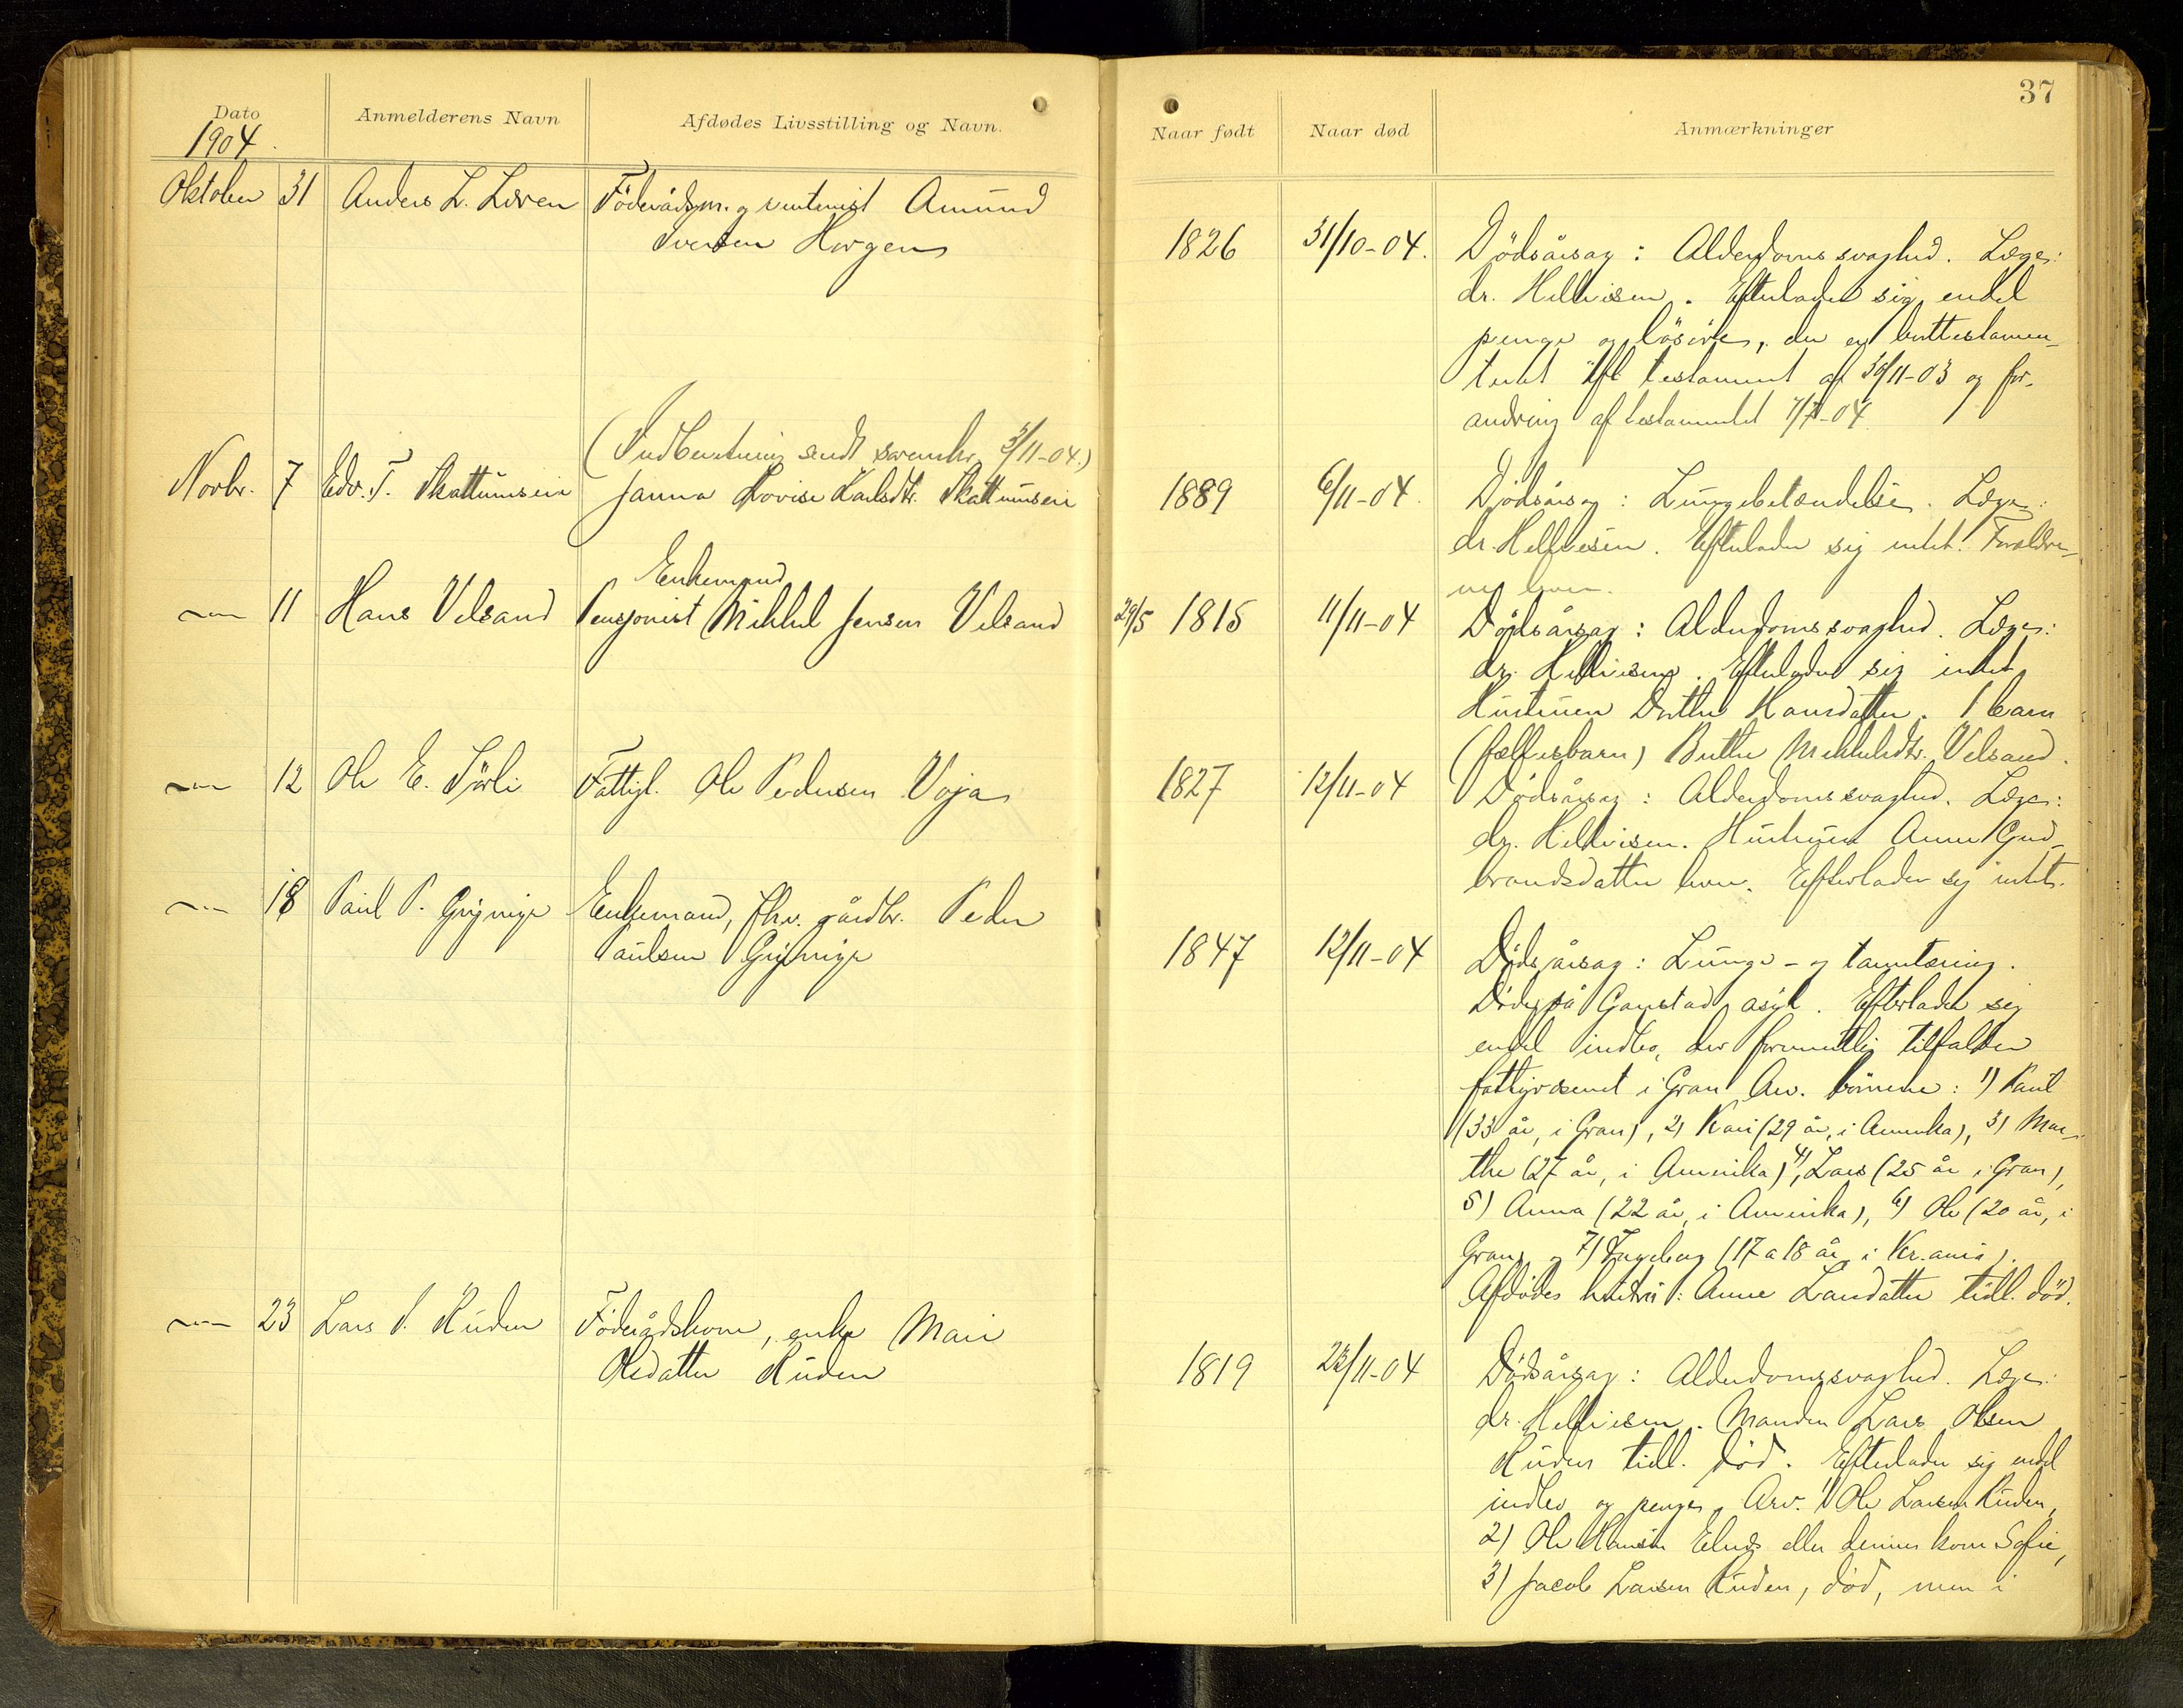 37
Dato
Anmelderens Navn
Afdødes Livsstilling og Navn.
Naar født
Naar død
Anmærkninger
1904
Oktober 31 Anders L. Løven Föderådsm. og rentenist Amund
Iversen Horgen
1826 31/10-04.
Dödsårsag: Alderdomssvaghed. Læge:
dr. Hellviesen. Efterlader sig endel
penge og lösöre, der er borttestamen-
teret ifl. testament af 30/11-03 og for-
andring af testamentet 7/7-04.
(Indberetning sendt sorenskr. 3/11-04.)
Novbr. 7 Edv. T. Skattumseie Janna Lovise Karlsdtr. Skattumseie
1889 6/11-04.
Dödsårsag: Lungebetændelse. Læge:
dr. Hellviesen. Efterlader sig intet. Forældre-
ne lever.
Enkemand
— 11 Hans Velsand Pensjonist Mikkel Jensen Velsand
29/5 1815 11/11-04
Dödsårsag: Alderdomssvaghed. Læge:
dr. Hellviesen. Efterlader sig intet.
Hustruen Dorthe Hansdatter. 1 barn
(fællesbarn) Berthe Mikkelsdtr. Velsand.
— 12 Ole E. Sörli Fattigl. Ole Pedersen Voja
1827 12/11-04
Dödsårsag: Alderdomssvaghed. Læge:
dr. Hellviesen. Hustruen Anne Gud-
brandsdatter lever. Efterlader sig intet.
— 18 Paul P. Gryninge Enkemand, fhv. gårdbr. Peder
Paulsen Gryninge
1847 12/11-04
Dödsårsag: Lunge- og tarmtæring.
Döde på Gaustad asyl. Efterlader sig
endel indbo, der formentlig tilfalder
fattigvæsenet i Gran. Arv. börnene: 1) Paul
(33 år, i Gran), 2) Kari (29 år, i Amerika), 3) Mar-
the (27 år, i Amerika), 4) Lars (25 år i Gran),
5) Anna (22 år, i Amerika), 6) Ole (20 år, i
Gran) og 7) Ingeborg (17 a 18 år, i Kr.ania).
Afdödes hustru: Anne Larsdatter tidl. död.
— 23 Lars P. Ruden Föderådskone, enke Mari
Olsdatter Ruden
1819 23/11-04
Dödsårsag: Alderdomssvaghed. Læge:
dr. Hellviesen. Manden Lars Olsen
Ruden tidl. död. Efterlader sig endel
indbo og penge. Arv. 1) Ole Larsen Ruden,
2) Ole Hansen eller dennes kone Sofie,
3) Jacob Larsen Ruden, död, men i